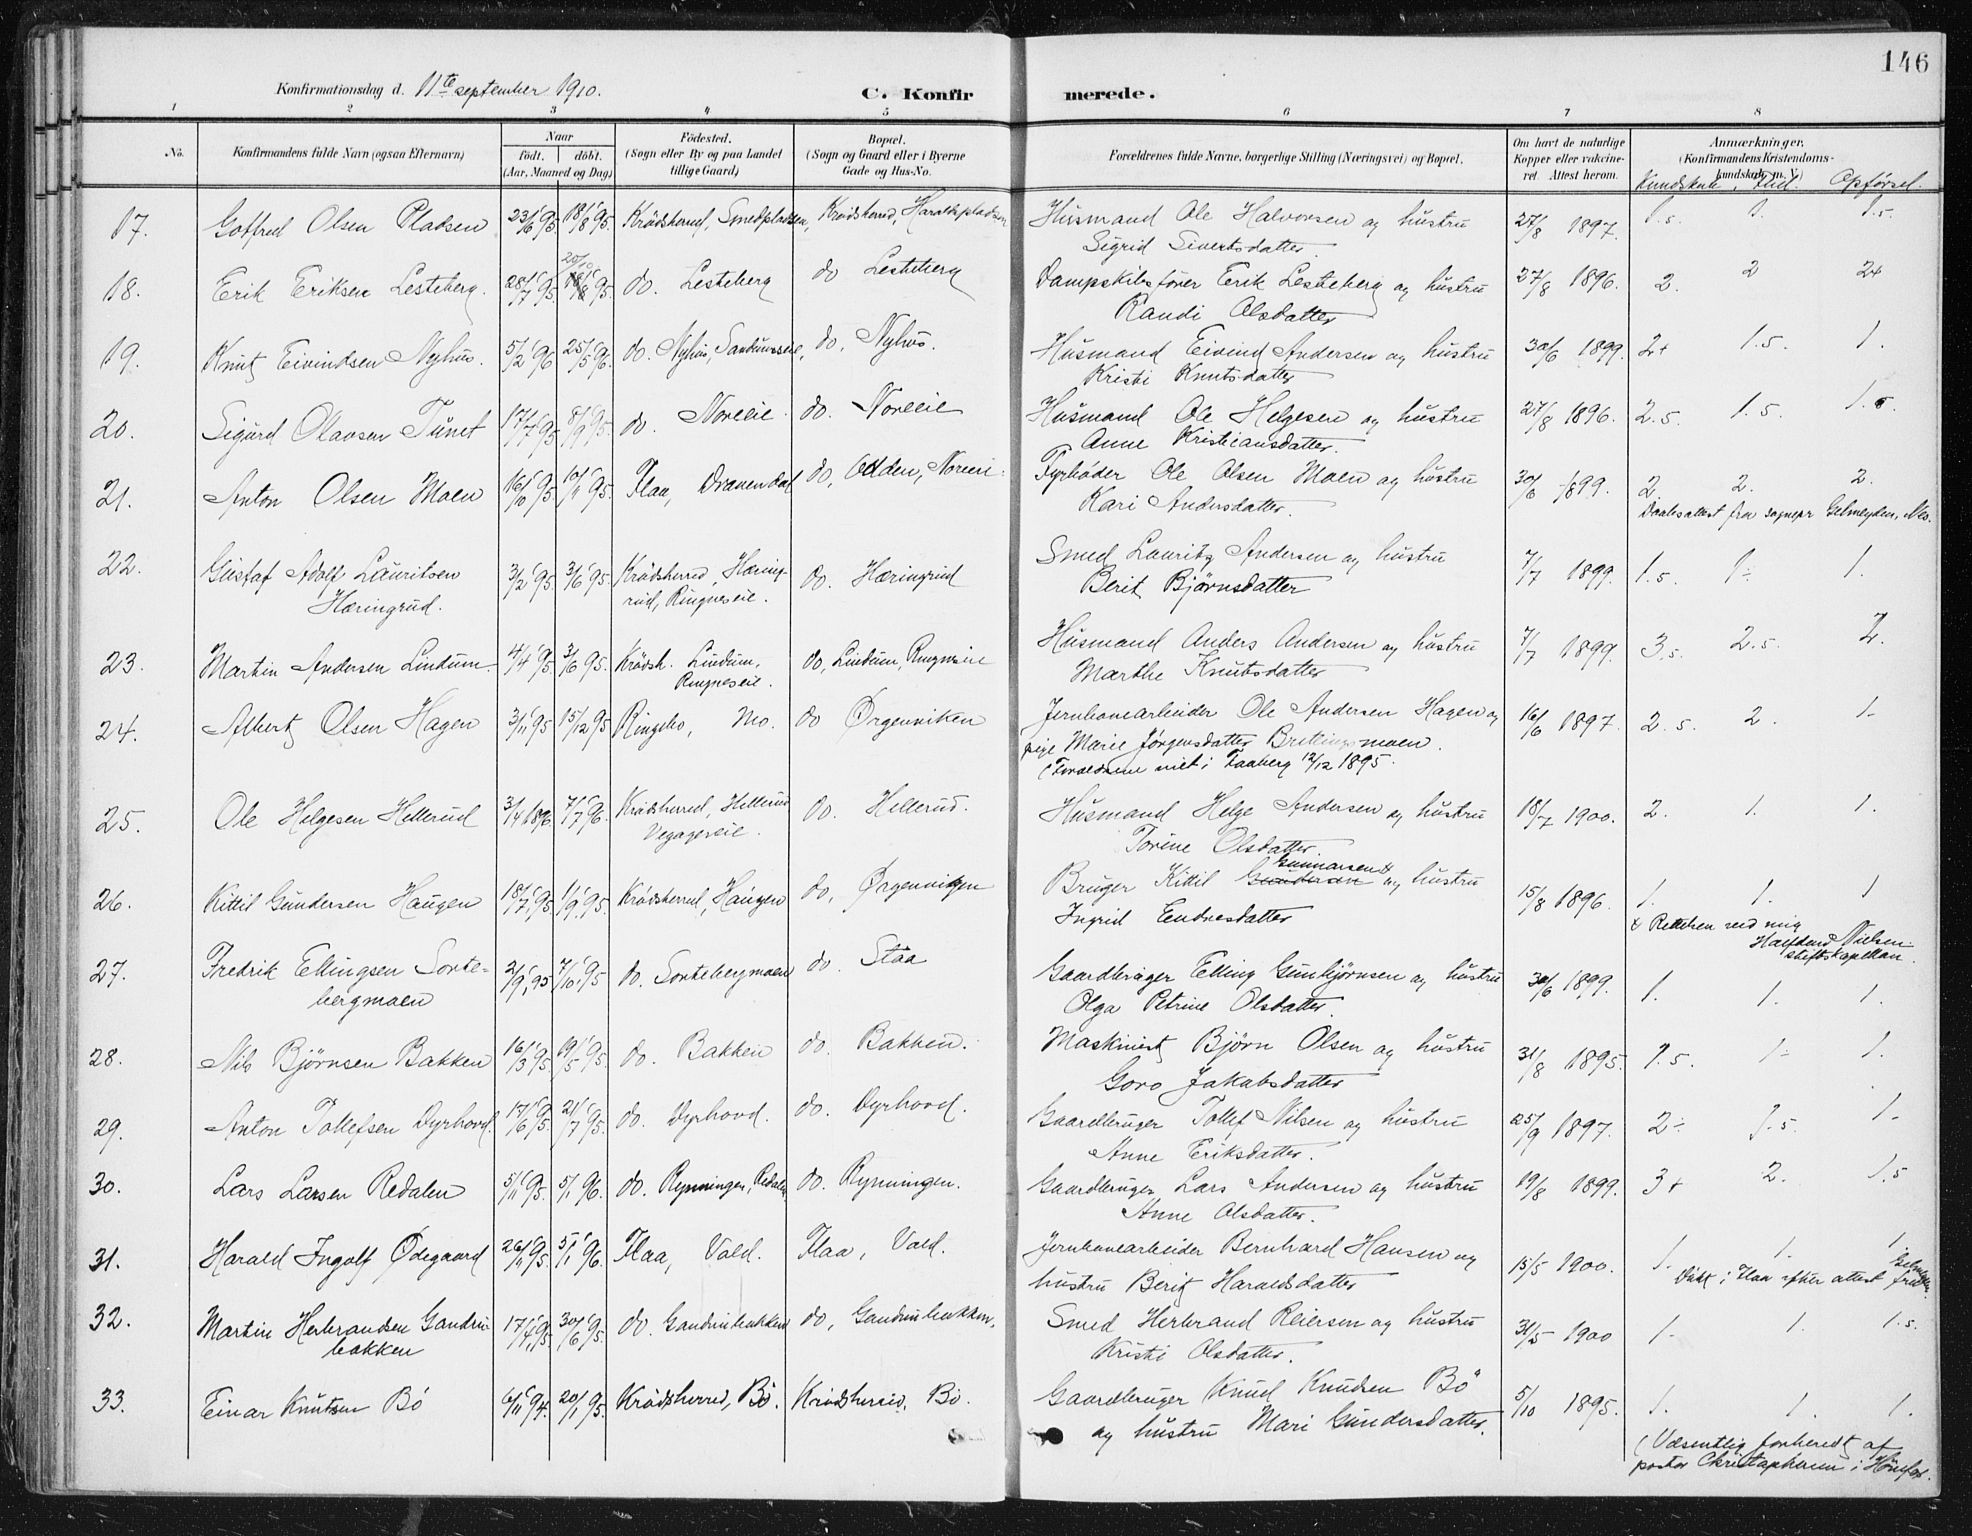 146
Konfirmationsdag d. 11te september 1910.
C. Konfirmerede.
1 2 3 4 5 6 7 8
No. Konfirmandens fulde Navn (ogsaa Efternavn) Naar födt. döbt. (Aar, Maaned og Dag) Födested. (Sogn eller By og paa Landet tillige Gaard) Bopæl. (Sogn og Gaard eller i Byerne Gade og Hus-No. Forældrenes fulde Navne, borgerlige Stilling (Næringsvei) og Bopæl. Om havt de naturlige Kopper eller vakcineret. Attest herom. Anmærkninger. (Konfirmandens Kristendomskundskab m. V.)
Kundskab, Flid Opførsel.
17. Gotfred Olsen Pladsen 23/6 95. 18/8 95. Krödsherred, Smedpladsen, Krödsherred, Haraldspladsen Husmand Ole Halvorsen og hustru 27/8 1897. 1.5. 1. 1.5.
Sigrid Sivertsdatter
20/10
18. Erik Eriksen Lesteberg. 28/7 95. 18/8 95. do. Lesteberg do Lesteberg Dampskibsfører Erik Lesteberg og hustru 27/8 1896. 2. 2 2+
Randi Olsdatter
19. Knut Eivindsen Nyhus. 5/2 96 25/5 96. do. Nyhus, do. Nyhus. Husmand Eivind Andersen og hustru 30/6 1899. 2+ 1.5. 1.
Kristi Knutsdatter
20. Sigurd Olavsen Tunet 17/7 95. 8/9 95. do. Noreeie do. Noreeie Husmand Ole Helgesen og hustru 27/8 1896. 2.5. 1.5. 1.5.
Anne Kristiansdatter.
21. Anton Olsen Moen 16/10 95. 10/11 95. Flaa, do, Odden, Fyrbøder Ole Olsen Moen og hustru 30/6 1899. 2 2. 2.
Kari Andersdatter.
Daabsattest fra sognepr Gelmeyden, Nes.
22. Gustaf Adolf Lauritsen 3/2 95. 3/6 95. Krödsherred, Hæring- do. Hæringrud Smed Lauritz Andersen og hustru 7/7 1899. 1.5. 1÷ 1.
Hæringrud. rud, Ringneseie. Berit Bjørnsdatter
23. Martin Andersen Lindum 4/4 95. 3/6 95. Krödsh. Lindum, do, Lindum, Ringneseie Husmand Anders Andersen og hustru 7/7 1899. 3.5. 2.5. 2.
Ringneseie. Marthe Knutsdatter
24. Albert Olsen Hagen 3/11 95 15/12 95 Ringebo, Mo. do Ørgenviken Jernbanearbeider Ole Andersen Hagen og 16/6 1897. 2.5. 2. 1-
pige Marie Jørgensdatter
(Forældrene viet i Faaberg 12/12 1895.
25. Ole Helgesen Hellerud 3/4 1896. 7/7 96. Krödsherred, Hellerud do. Hellerud. Husmand Helge Andersen og hustru 18/7 1900. 2. 1. 1.
Torine Olsdatter.
26. Kittil Gundersen Haugen 18/7 95. 1/9 95. Krödsherred, Haugen do, Ørgenviken Bruger Kittil Gundersen Gunnarsen x og hustru 15/8 1896. 1. 1. 1
Ingrid Endresdatter
x Rettelsen ved mig
Halfdan Nielsen
stiftskapellan.
27. Fredrik Ellingsen Sorte- 2/9 95 7/10 95 do. Sortebergmoen do. Staa Gaardbruger Elling Gunbjørnsen og hustru 30/6 1899. 1. 1. 1.
bergmoen Olga Petrine Olsdatter.
28. Nils Bjørnsen Bakken 16/3 95. 19/5 95. do. Bakken do. Bakken. Maskinist Bjørn Olsen og hustru 31/8 1895. 1.5. 1÷ 1.
Goro Jakobsdatter
29. Anton Tollefsen Dyrhovd. 17/6 95. 21/7 95. do. Dyrhovd. do. Dyrhovd. Gaardbruger Tollef Nilsen og hustru 25/9 1897. 2÷ 1.5. 1-
Anne Eriksdatter.
30. Lars Larsen Redalen 5/11 95. 5/1 96. do. Rynningen, Redalen do. Rynningen. Gaardbruger Lars Andersen og hustru 19/8 1899. 3+ 2. 1.5
Anne Olsdatter.
31. Harald Ingolf Ødegaard 26/11 95. 5/1 96. Flaa, Vold. Flaa, Vold. Jernbanearbeider Bernhard Hansen og 15/5 1900. 1. 1. 1.
hustru Berit Haraldsdatter Døbt i Flaa efter attest fra
32. Martin Herbrandsen Gandru- 17/4 95. 30/6 95. do. Gandrudbakken do, Gandrudbakken, Smed Herbrand Reiersen og hustru 31/5 1900 1- 1. 1.5.
bakken Kristi Olsdatter.
33. Einar Knutsen Bö 6/11 94. 20/1 95. Krödsherred, Bö. Krödsherred, Bö. Gaardbruger Knud Knudsen Bö 5/10 1895. 1. 1. 1.
og hustru Mari Gundersdatter.
(Væsentlig forberedt af
pastor Christophersen i Hønefos.